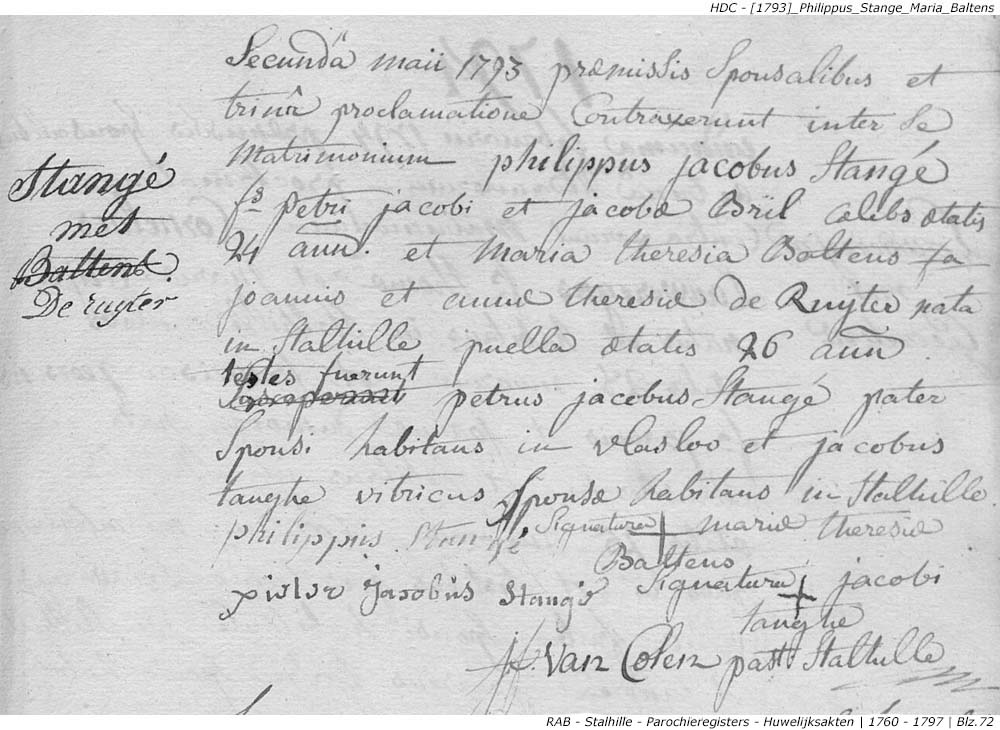 HDC - [1793]_Philippus_Stange_Maria_Baltens
Secundâ maii 1793 præmissis Sponsalibus et
trinâ proclamatione Contraxerunt inter Se
Matrimonium philippus jacobus Stangé
fs petri jacobi et jacobæ Bril cælibs ætatis
24 ann. et Maria theresia Baltens fa
joannis et annæ theresiæ de Ruyter nata
in Stalhille puella ætatis 26 ann.
testes fuerunt
petrus jacobus Stangé pater
Sponsi habitans in vlasloo et jacobus
tanghe vitricus Sponsæ habitans in Stalhille
Stangé
met
Baltens.
De ruyter
philippus Stangé Signatura + mariæ theresiæ
Baltens
pieter Jacobus Stange Signatura + jacobi
tanghe
Van Colen past. Stalhille
RAB - Stalhille - Parochieregisters - Huwelijksakten | 1760 - 1797 | Blz.72